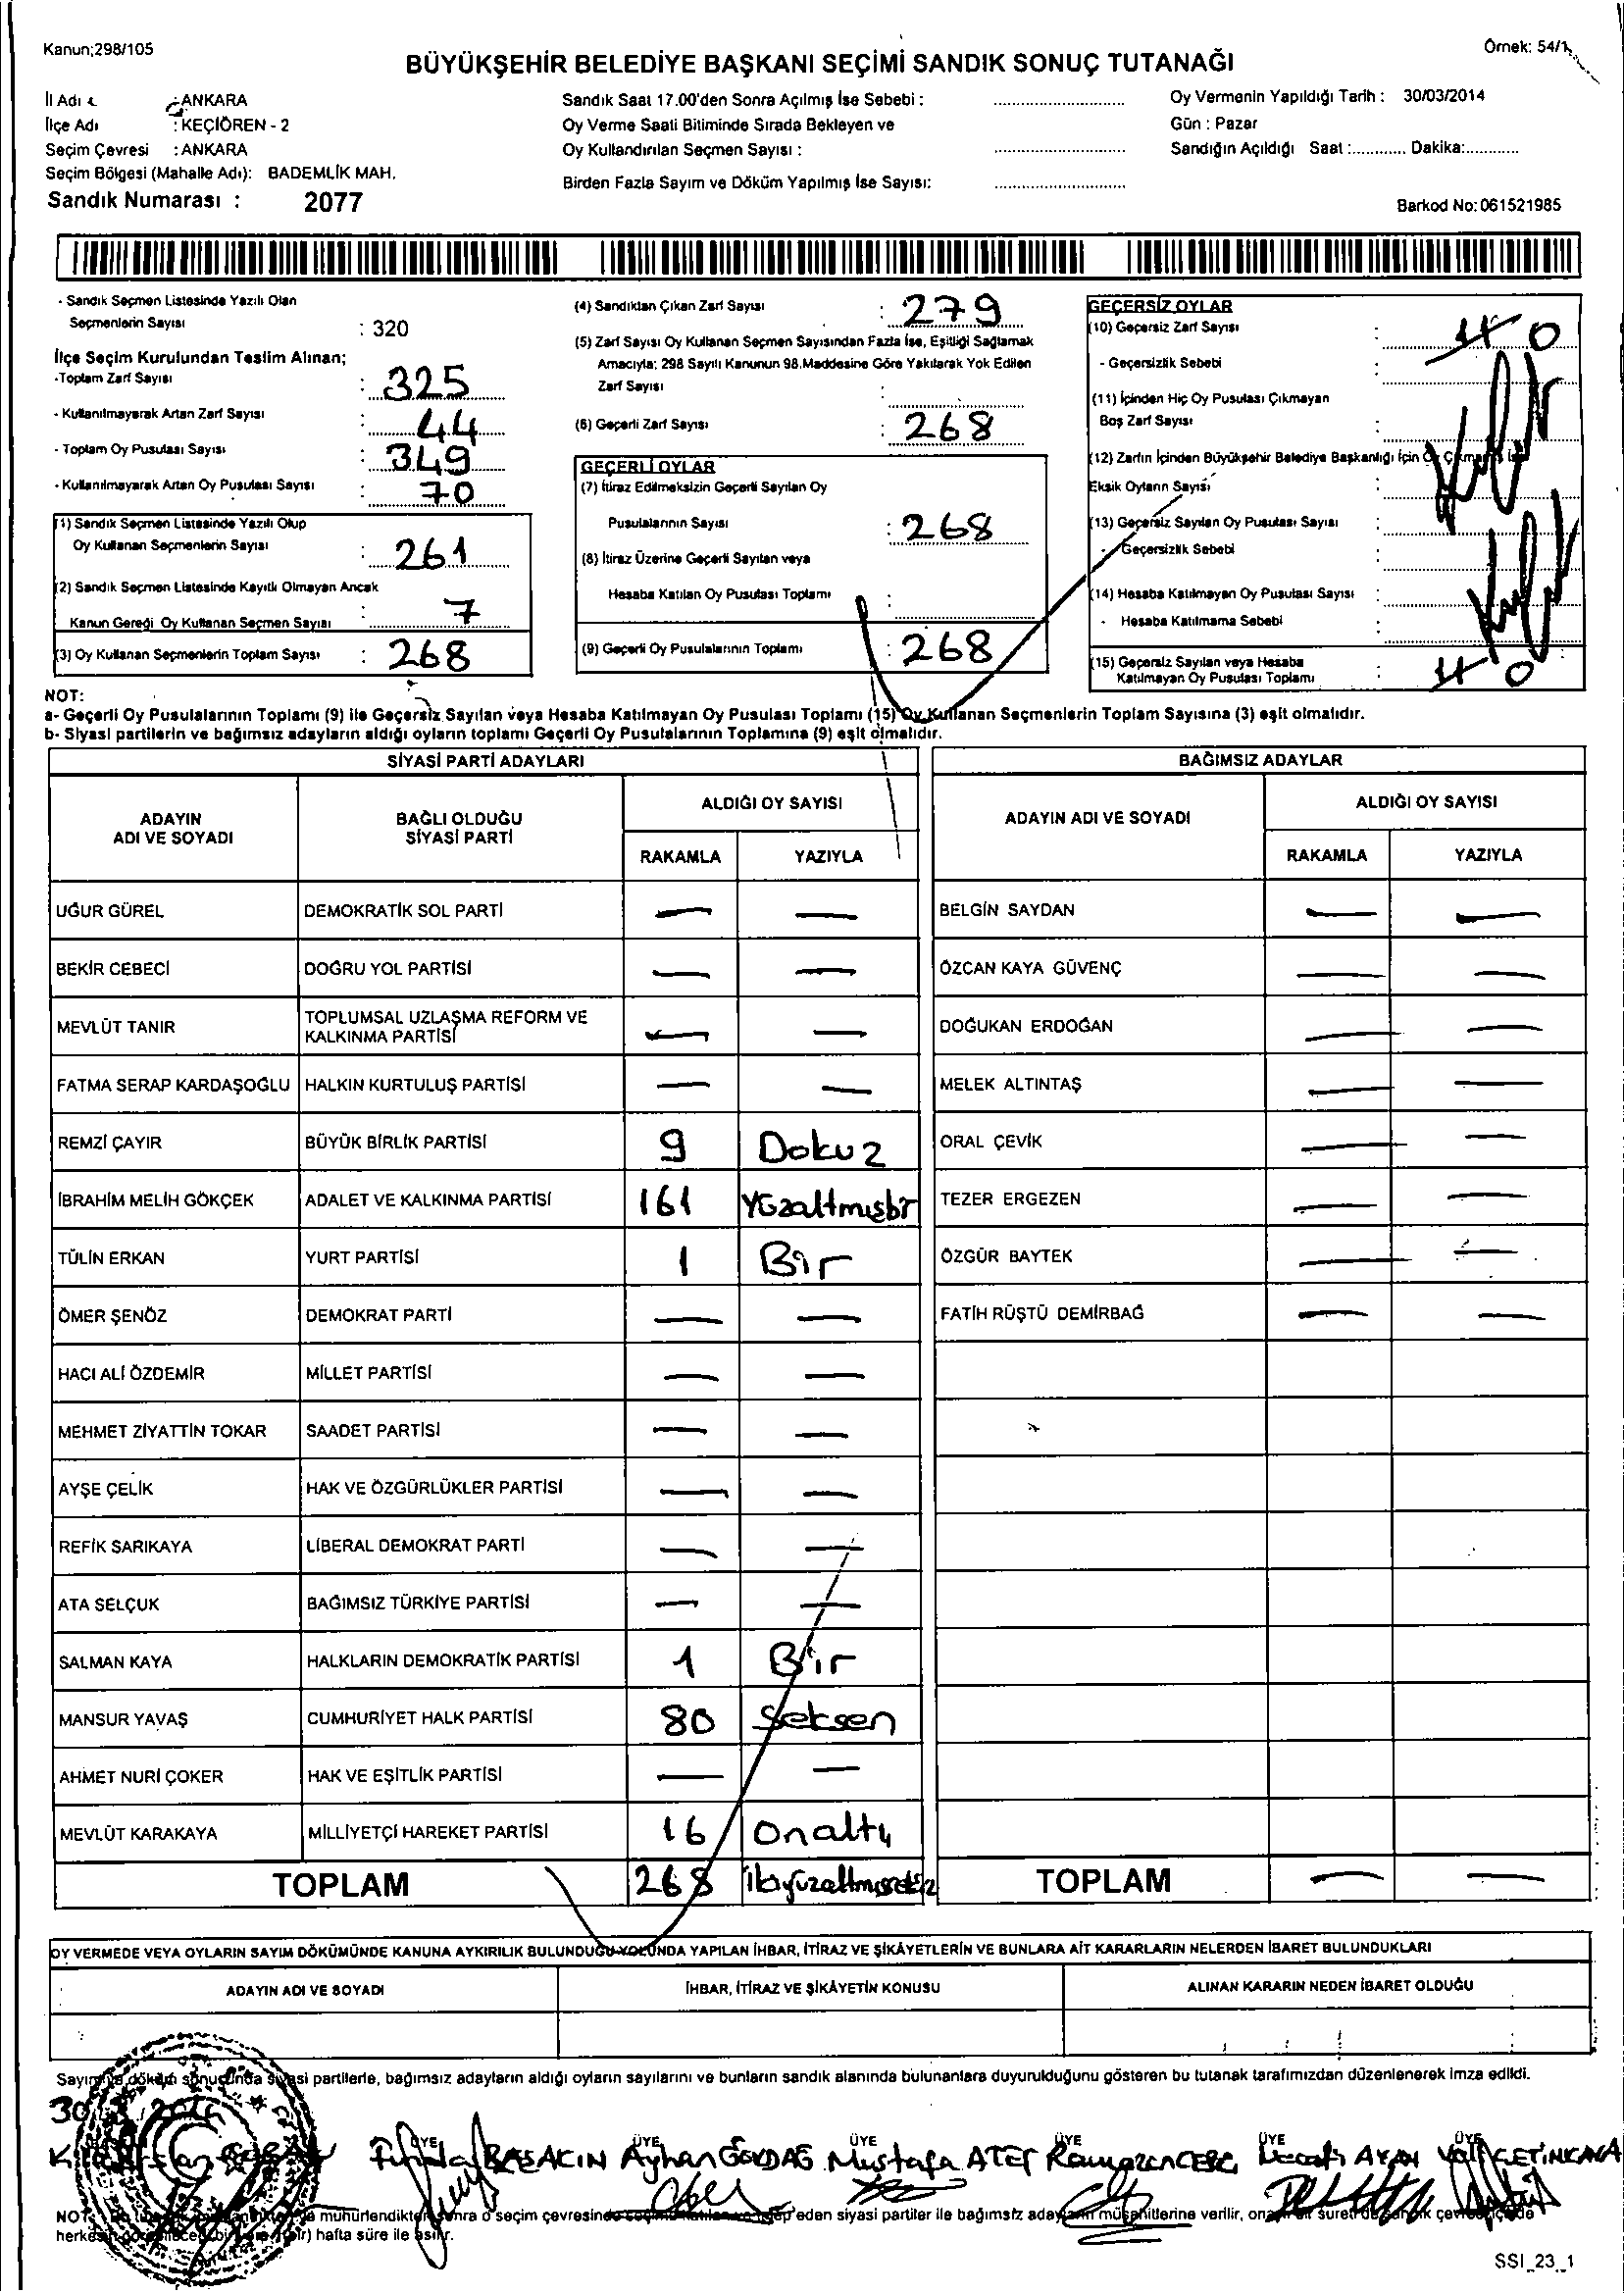 Kanun;298/105
Örnek: 54/1
BÜYÜKŞEHİR BELEDİYE BAŞKANI SEÇİMİ SANDIK SONUÇ TUTANAĞI
İl Adı : ANKARA
İlçe Adı : KEÇİÖREN - 2
Seçim Çevresi : ANKARA
Seçim Bölgesi (Mahalle Adı): BADEMLİK MAH.
Sandık Numarası : 2077
Sandık Saat 17.00'den Sonra Açılmış İse Sebebi :
Oy Verme Saati Bitiminde Sırada Bekleyen ve
Oy Kullandırılan Seçmen Sayısı :
Birden Fazla Sayım ve Döküm Yapılmış İse Sayısı:
Oy Vermenin Yapıldığı Tarih : 30/03/2014
Gün : Pazar
Sandığın Açıldığı Saat :............ Dakika:............
Barkod No: 061521985
- Sandık Seçmen Listesinde Yazılı Olan
Seçmenlerin Sayısı : 320
İlçe Seçim Kurulundan Teslim Alınan;
-Toplam Zarf Sayısı : 325
- Kullanılmayarak Artan Zarf Sayısı : 44
- Toplam Oy Pusulası Sayısı : 349
- Kullanılmayarak Artan Oy Pusulası Sayısı : 70
(1) Sandık Seçmen Listesinde Yazılı Olup
Oy Kullanan Seçmenlerin Sayısı : 261
(2) Sandık Seçmen Listesinde Kayıtlı Olmayan Ancak
Kanun Gereği Oy Kullanan Seçmen Sayısı : 7
(3) Oy Kullanan Seçmenlerin Toplam Sayısı : 268
(4) Sandıktan Çıkan Zarf Sayısı : 279
(5) Zarf Sayısı Oy Kullanan Seçmen Sayısından Fazla İse, Eşitliği Sağlamak
Amacıyla; 298 Sayılı Kanunun 98.Maddesine Göre Yakılarak Yok Edilen
Zarf Sayısı :
(6) Geçerli Zarf Sayısı : 268
GEÇERLİ OYLAR
(7) İtiraz Edilmeksizin Geçerli Sayılan Oy
Pusulalarının Sayısı : 268
(8) İtiraz Üzerine Geçerli Sayılan veya
Hesaba Katılan Oy Pusulası Toplamı :
(9) Geçerli Oy Pusulalarının Toplamı : 268
GEÇERSİZ OYLAR
(10) Geçersiz Zarf Sayısı : 0
- Geçersizlik Sebebi :
(11) İçinden Hiç Oy Pusulası Çıkmayan
Boş Zarf Sayısı :
(12) Zarfın İçinden Büyükşehir Belediye Başkanlığı İçin
Eksik Oyların Sayısı
(13) Geçersiz Sayılan Oy Pusulası Sayısı :
- Geçersizlik Sebebi :
(14) Hesaba Katılmayan Oy Pusulası Sayısı :
- Hesaba Katılmama Sebebi :
(15) Geçersiz Sayılan veya Hesaba
Katılmayan Oy Pusulası Toplamı : 0
NOT:
a- Geçerli Oy Pusulalarının Toplamı (9) ile Geçersiz Sayılan veya Hesaba Katılmayan Oy Pusulası Toplamı (15) Oy Kullanan Seçmenlerin Toplam Sayısına (3) eşit olmalıdır.
b- Siyasi partilerin ve bağımsız adayların aldığı oyların toplamı Geçerli Oy Pusulalarının Toplamına (9) eşit olmalıdır.
SİYASİ PARTİ ADAYLARI
ADAYIN ADI VE SOYADI BAĞLI OLDUĞU SİYASİ PARTİ ALDIĞI OY SAYISI
RAKAMLA YAZIYLA
UĞUR GÜREL DEMOKRATİK SOL PARTİ — —
BEKİR CEBECİ DOĞRU YOL PARTİSİ — —
MEVLÜT TANIR TOPLUMSAL UZLAŞMA REFORM VE KALKINMA PARTİSİ — —
FATMA SERAP KARDAŞOĞLU HALKIN KURTULUŞ PARTİSİ — —
REMZİ ÇAYIR BÜYÜK BİRLİK PARTİSİ 9 Dokuz
İBRAHİM MELİH GÖKÇEK ADALET VE KALKINMA PARTİSİ 161 Yüzaltmışbir
TÜLİN ERKAN YURT PARTİSİ 1 Bir
ÖMER ŞENÖZ DEMOKRAT PARTİ — —
HACI ALİ ÖZDEMİR MİLLET PARTİSİ — —
MEHMET ZİYATTİN TOKAR SAADET PARTİSİ — —
AYŞE ÇELİK HAK VE ÖZGÜRLÜKLER PARTİSİ — —
REFİK SARIKAYA LİBERAL DEMOKRAT PARTİ — —
ATA SELÇUK BAĞIMSIZ TÜRKİYE PARTİSİ — —
SALMAN KAYA HALKLARIN DEMOKRATİK PARTİSİ 1 Bir
MANSUR YAVAŞ CUMHURİYET HALK PARTİSİ 80 Seksen
AHMET NURİ ÇOKER HAK VE EŞİTLİK PARTİSİ — —
MEVLÜT KARAKAYA MİLLİYETÇİ HAREKET PARTİSİ 16 Onaltı
TOPLAM 268 ikiyüzaltmışsekiz
BAĞIMSIZ ADAYLAR
ADAYIN ADI VE SOYADI ALDIĞI OY SAYISI
RAKAMLA YAZIYLA
BELGİN SAYDAN — —
ÖZCAN KAYA GÜVENÇ — —
DOĞUKAN ERDOĞAN — —
MELEK ALTINTAŞ — —
ORAL ÇEVİK — —
TEZER ERGEZEN — —
ÖZGÜR BAYTEK — —
FATİH RÜŞTÜ DEMİRBAĞ — —
TOPLAM — —
OY VERMEDE VEYA OYLARIN SAYIM DÖKÜMÜNDE KANUNA AYKIRILIK BULUNDUĞU YOLUNDA YAPILAN İHBAR, İTİRAZ VE ŞİKÂYETLERİN VE BUNLARA AİT KARARLARIN NELERDEN İBARET BULUNDUKLARI
ADAYIN ADI VE SOYADI İHBAR, İTİRAZ VE ŞİKÂYETİN KONUSU ALINAN KARARIN NEDEN İBARET OLDUĞU
Sayım ve döküm sonucunda siyasi partilerle, bağımsız adayların aldığı oyların sayılarını ve bunların sandık alanında bulunanlara duyurulduğunu gösteren bu tutanak tarafımızdan düzenlenerek imza edildi.
ÜYE ÜYE ÜYE ÜYE ÜYE ÜYE
Ayhan Mustafa ATEŞ Ramazan ÇETİNKAYA
mühürlendikten sonra o seçim çevresinde eden siyasi partiler ile bağımsız adayların müşahitlerine verilir,
hafta süre ile asılır.
SSI_23_1